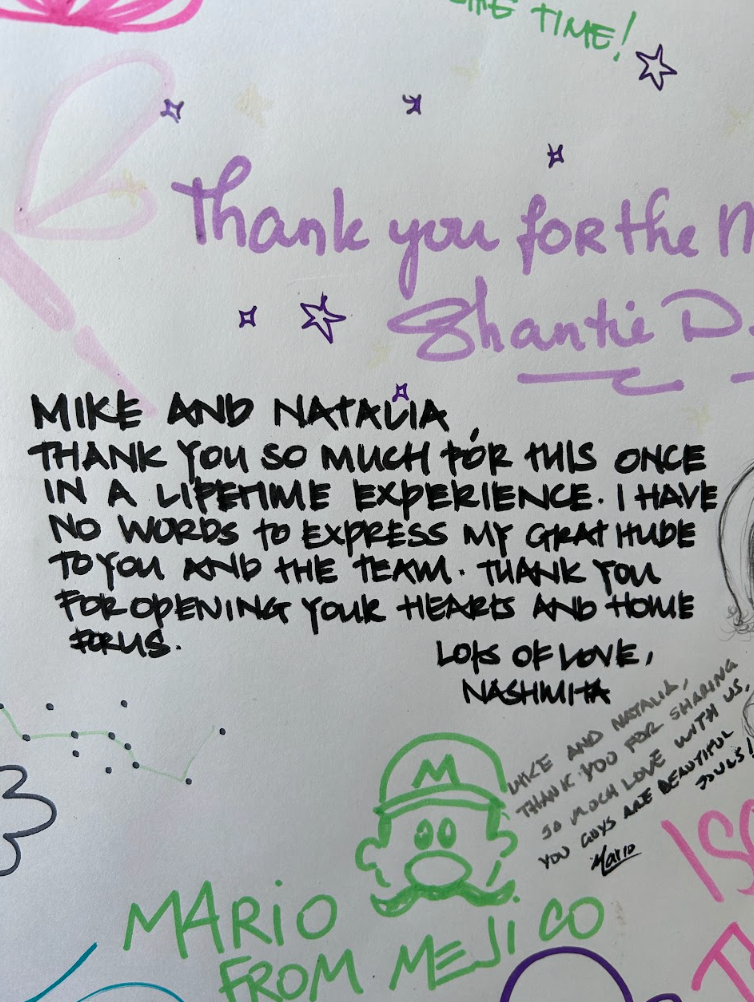 TIME!
Thank you for the
Shantie D.
MIKE AND NATALIA,
THANK YOU SO MUCH FOR THIS ONCE
IN A LIFETIME EXPERIENCE. I HAVE
NO WORDS TO EXPRESS MY GRATITUDE
TO YOU AND THE TEAM. THANK YOU
FOR OPENING YOUR HEARTS AND HOME
FOR US.
LOTS OF LOVE,
NASHMITA
MIKE AND NATALIA,
THANK YOU FOR SHARING
SO MUCH LOVE WITH US,
YOU GUYS ARE BEAUTIFUL
SOULS!
Mario
M
MARIO
FROM MEJICO